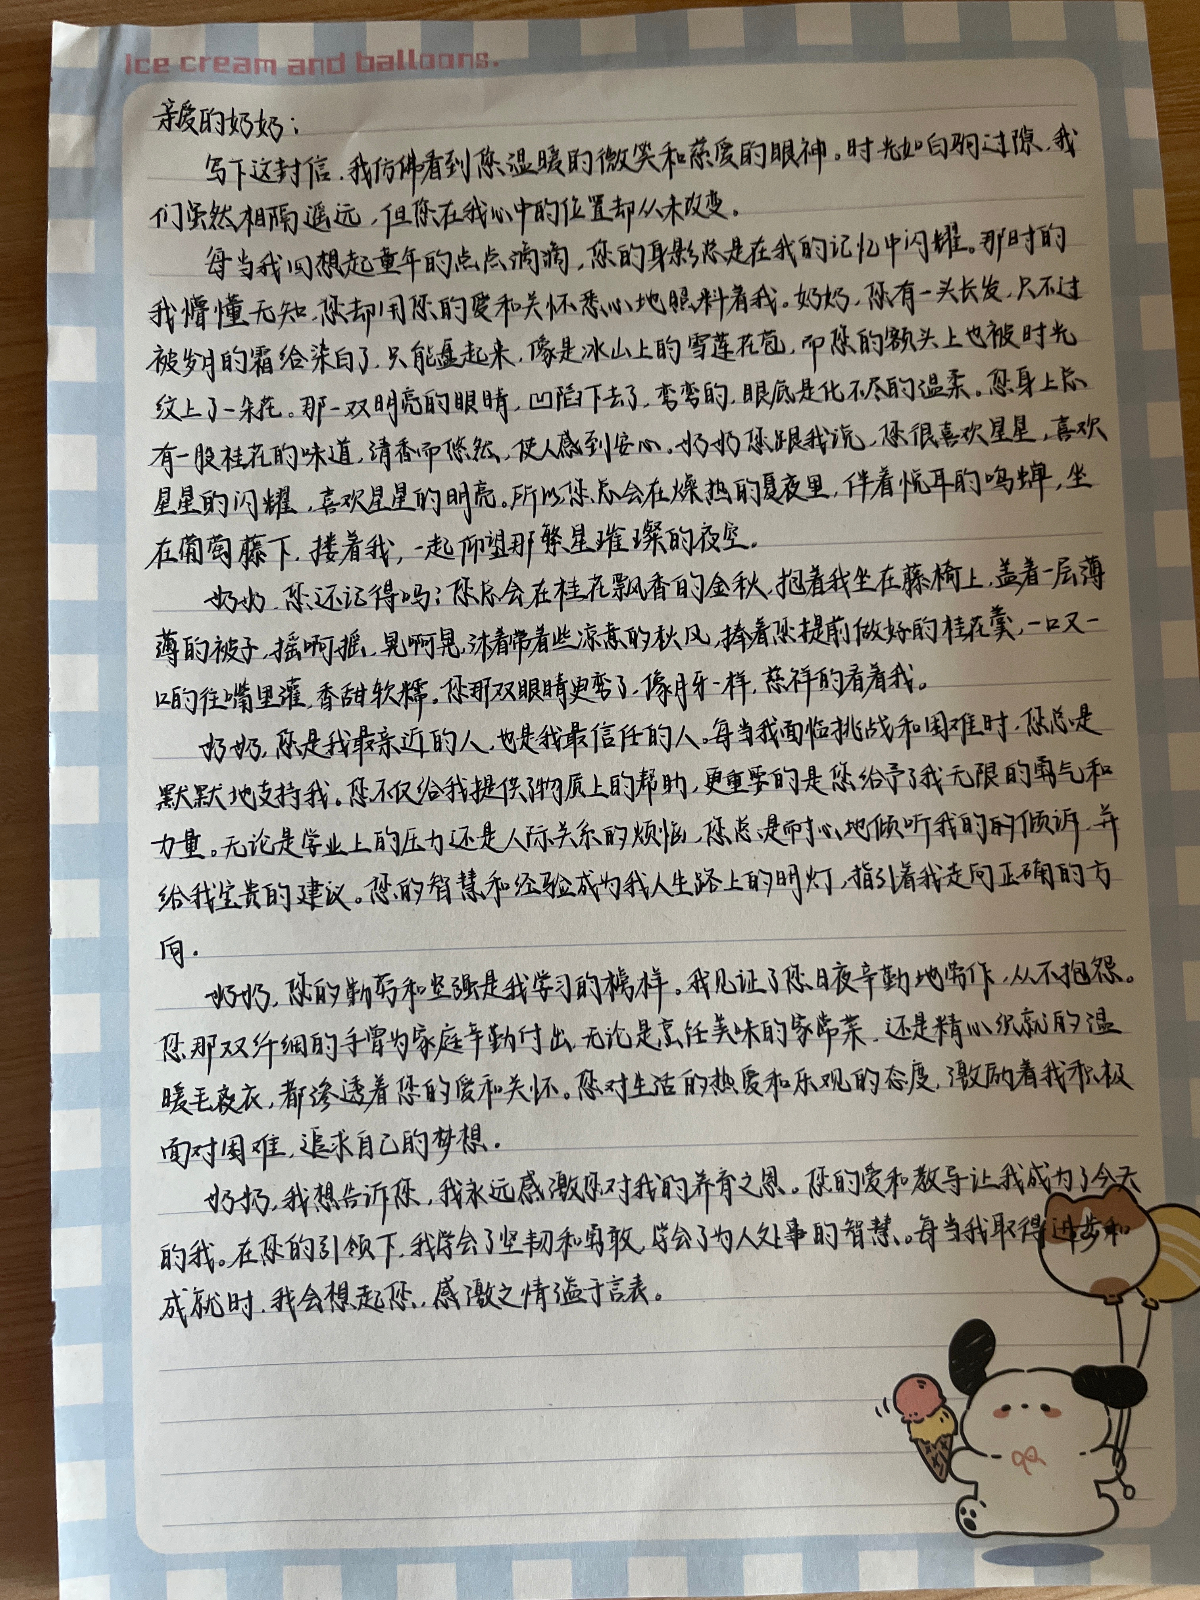 Ice cream and balloons.
亲爱的奶奶：
写下这封信，我仿佛看到您温暖的微笑和慈爱的眼神。时光如白驹过隙，我
们虽然相隔遥远，但您在我心中的位置却从未改变。
每当我回想起童年的点点滴滴，您的身影总是在我的记忆中闪耀。那时的
我懵懂无知，您却用您的爱和关怀悉心地照料着我。奶奶，您有一头长发，只不过
被岁月的霜给染白了，只能盘起来，像是冰山上的雪莲花苞，而您的额头上也被时光
纹上了一朵花。那一双明亮的眼睛，凹陷下去了，弯弯的，眼底是化不尽的温柔。您身上总
有一股桂花的味道，清香而悠然，使人感到安心。奶奶您跟我说，您很喜欢星星，喜欢
星星的闪耀，喜欢星星的明亮。所以您总会在燥热的夏夜里，伴着悦耳的鸣蝉，坐
在葡萄藤下，搂着我，一起仰望那繁星璀璨的夜空。
奶奶，您还记得吗？您总会在桂花飘香的金秋，抱着我坐在藤椅上，盖着一层薄
薄的被子，摇啊摇，晃啊晃，沐着带着些凉意的秋风，捧着您提前做好的桂花羹，一口又一
口的往嘴里灌，香甜软糯。您那双眼睛更弯了，像月牙一样，慈祥的看着我。
奶奶，您是我最亲近的人，也是我最信任的人。每当我面临挑战和困难时，您总是
默默地支持我。您不仅给我提供了物质上的帮助，更重要的是您给予了我无限的勇气和
力量。无论是学业上的压力还是人际关系的烦恼，您总是耐心地倾听我的的倾诉，并
给我宝贵的建议。您的智慧和经验成为我人生路上的明灯，指引着我走向正确的方
向。
奶奶，您的勤劳和坚强是我学习的榜样。我见证了您日夜辛勤地劳作，从不抱怨。
您那双纤细的手曾为家庭辛勤付出，无论是烹饪美味的家常菜，还是精心织就的温
暖毛衣，都渗透着您的爱和关怀。您对生活的热爱和乐观的态度，激励着我积极
面对困难，追求自己的梦想。
奶奶，我想告诉您，我永远感激您对我的养育之恩。您的爱和教导让我成为了今天
的我。在您的引领下，我学会了坚韧和勇敢，学会了为人处事的智慧。每当我取得进步和
成就时，我会想起您，感激之情溢于言表。